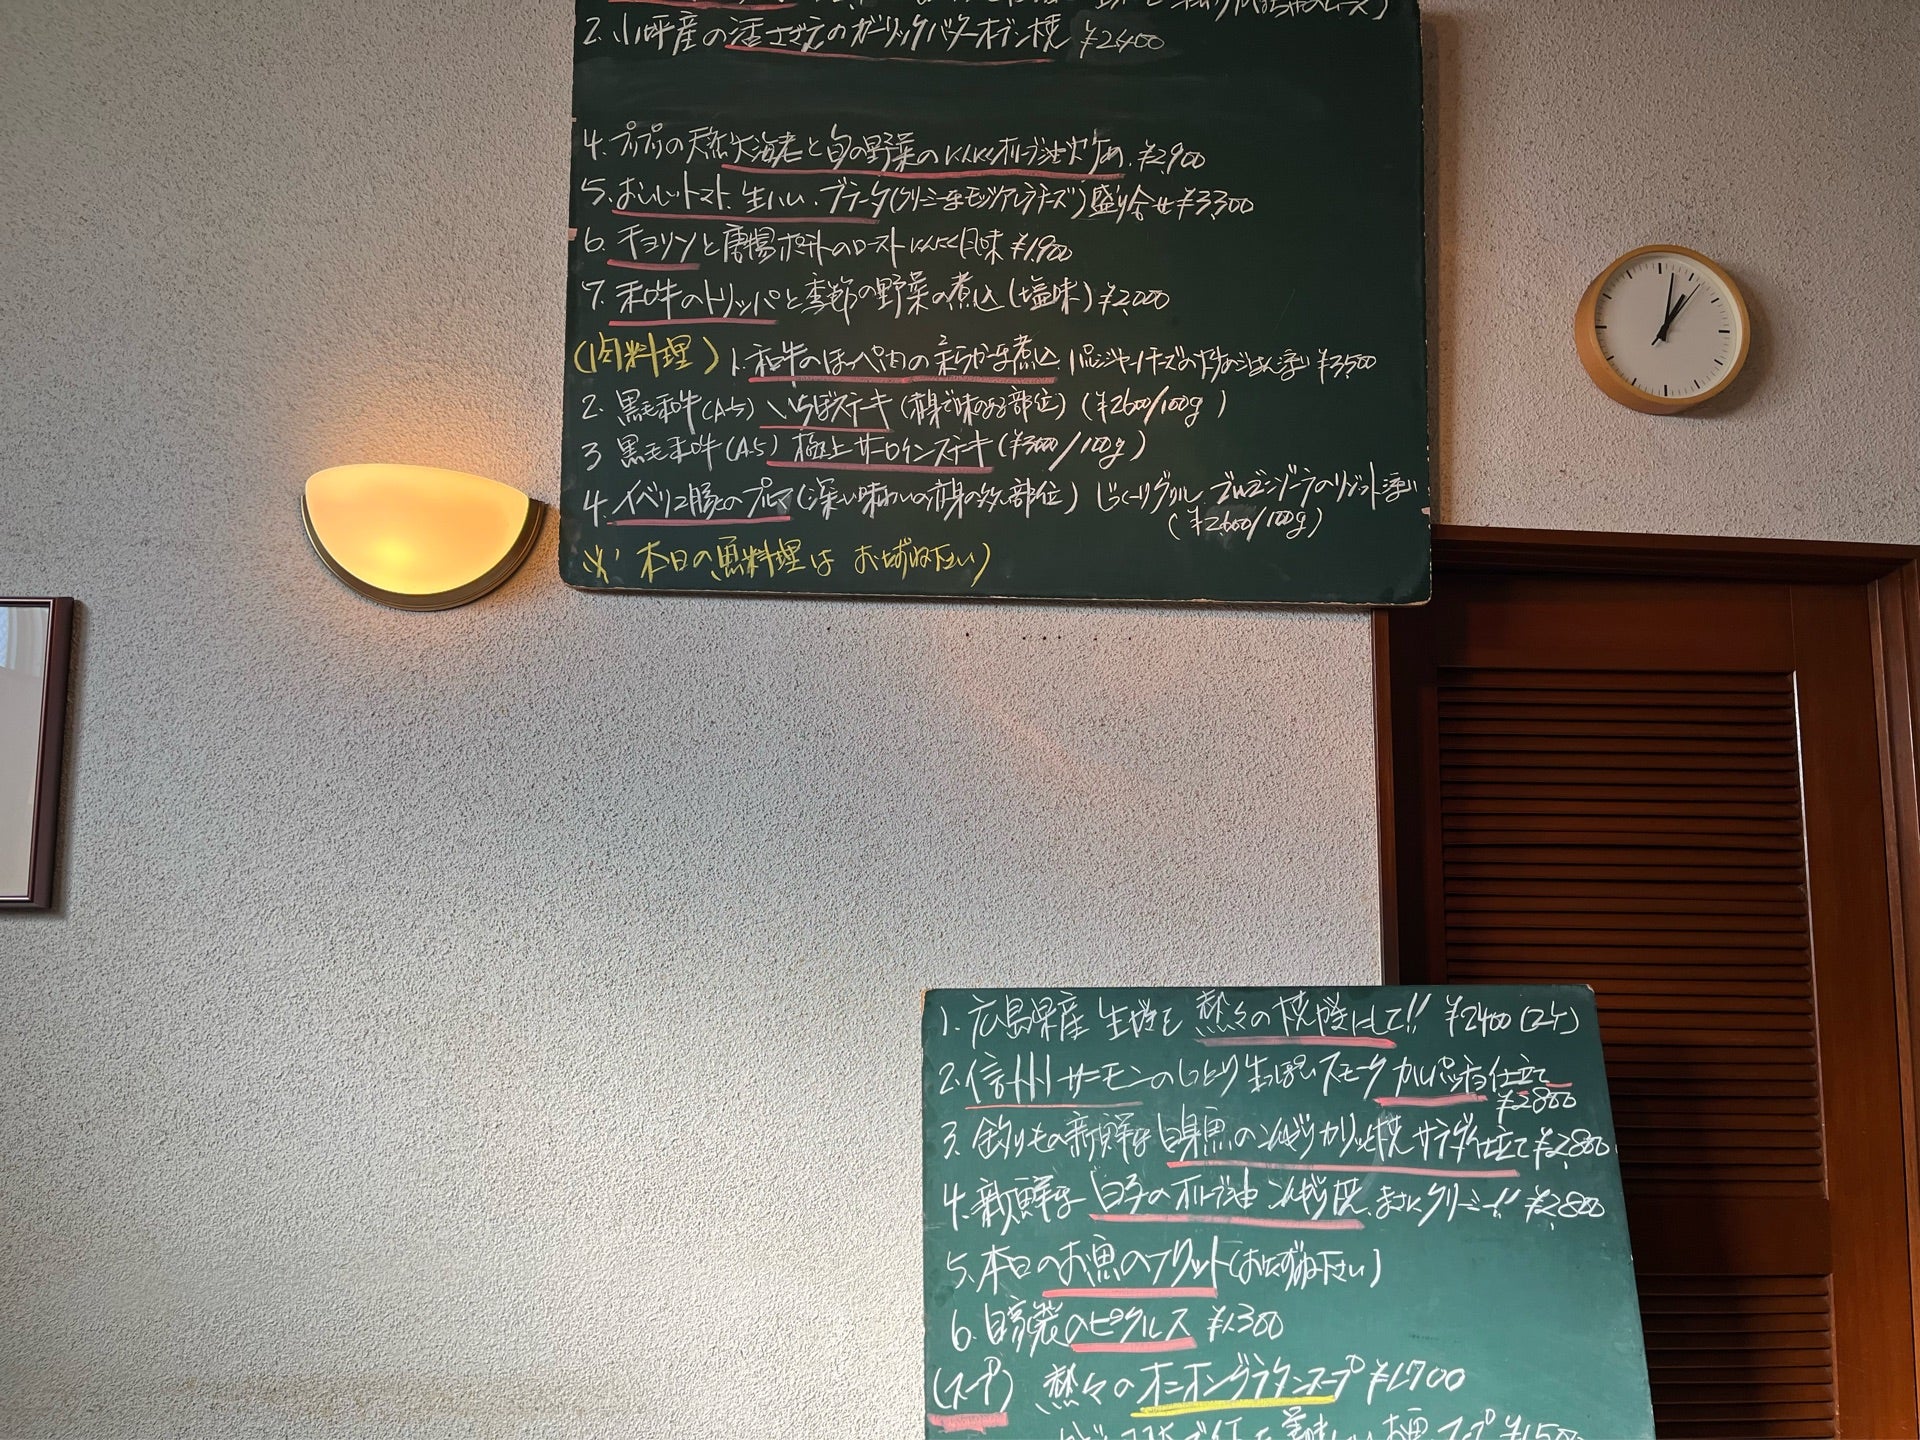 2. 小坪産の活さざえのガーリックバターオーブン焼 ¥2400
4. プリプリの天然大海老と旬の野菜のにんにくオリーブ油炒め ¥2,900
5. おいしいトマト、生ハム、ブラータ(クリーミーなモッツァレラチーズ)盛り合せ ¥3,300
6. チョリソと唐揚ポテトのローストにんにく風味 ¥1,900
7. 和牛のトリッパと季節の野菜の煮込(塩味) ¥2,000
(肉料理) 1. 和牛のほっぺ肉の柔らかな煮込 パルミジャーノチーズの 添い ¥3,500
2. 黒毛和牛(A-5) いちぼステーキ(赤身で味のある部位) (¥2600/100g)
3 黒毛和牛(A-5) 極上サーロインステーキ (¥3000/100g)
4. イベリコ豚のプルマ(深い味わいの赤身の多い部位) じっくりグリル ゴルゴンゾーラのリゾット添い
(¥2,600/100g)
※ 本日の魚料理は おたずね下さい)
1. 広島県産 生牡蠣を 熱々の焼牡蠣にして!! ¥2400 (2ケ)
2. 信州サーモンのしっとり生っぽいスモーク カルパッチョ仕立て
¥2800
3. 釣りもの新鮮な白身魚のこんがりカリッと焼 サラダ仕立て ¥2,800
4. 新鮮な 白子のオリーブ油 こんがり焼、まさにクリーミー!! ¥2,800
5. 本日のお魚のフリット(おたずね下さい)
6. 自家製のピクルス ¥1,300
(スープ) 熱々の オニオングラタンスープ ¥1,700
美味しいお魚スープ ¥1,500